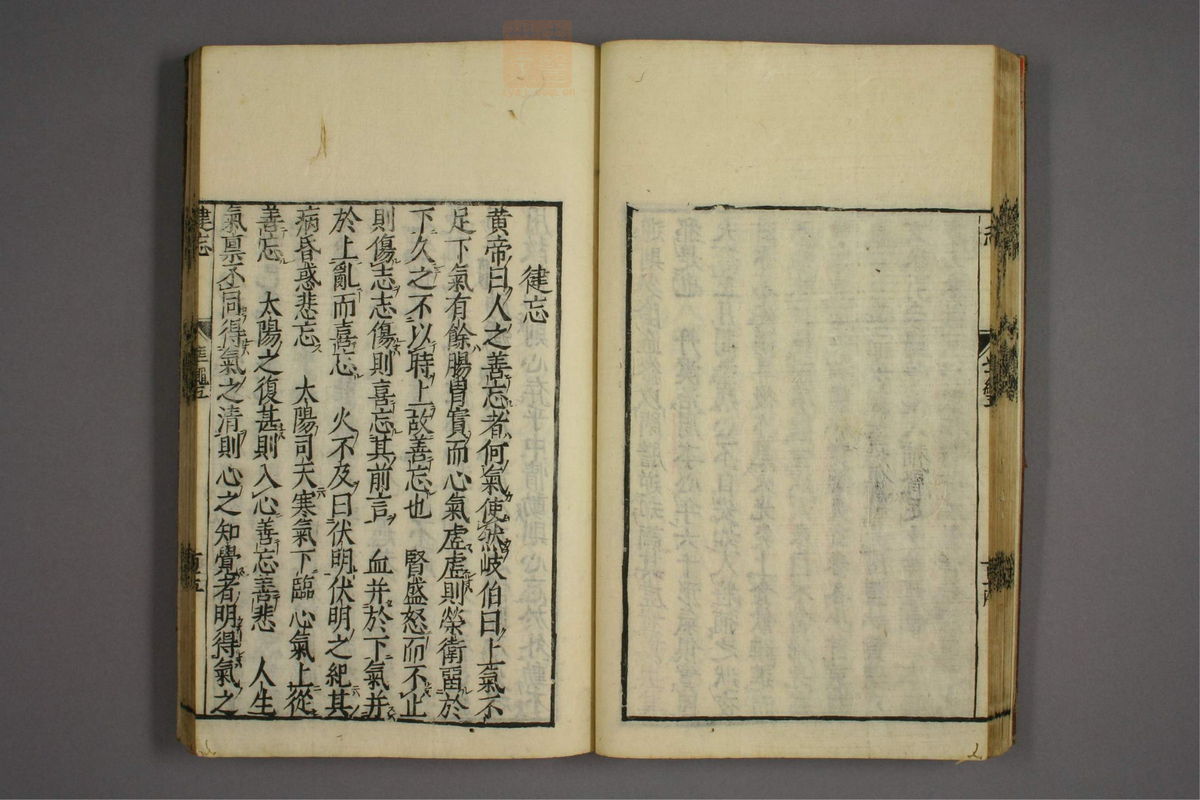 健忘
黄帝曰人之善忘者何氣使然岐伯曰上氣不
足下氣有餘腸胃實而心氣虛虛則榮衛留於
下久之不以時上故善忘也　腎盛怒而不止
則傷志志傷則喜忘其前言　血并於下氣并
於上亂而喜忘　火不及曰伏明伏明之紀其
病昏惑悲忘　太陽司天寒氣下臨心氣上從
善忘　太陽之復甚則入心善忘善悲　人生
氣禀丕同得氣之清則心之知覺者明得氣之
健忘